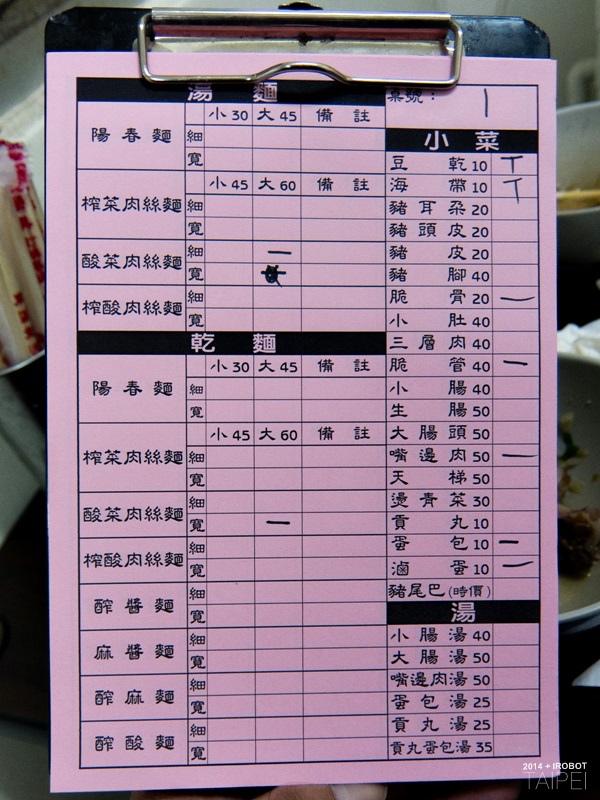 湯 麵
桌號： 1
小 30 大 45 備 註
陽春麵 細
寬
小 45 大 60 備 註
榨菜肉絲麵 細
寬
酸菜肉絲麵 細 一
寬
榨酸肉絲麵 細
寬
乾 麵
小 30 大 45 備 註
陽春麵 細
寬
小 45 大 60 備 註
榨菜肉絲麵 細
寬
酸菜肉絲麵 細
寬 一
榨酸肉絲麵 細
寬
醡醬麵 細
寬
麻醬麵 細
寬
醡麻麵 細
寬
醡酸麵 細
寬
小 菜
豆乾 10 T
海帶 10 T
豬耳朵 20
豬頭皮 20
豬皮 20
豬腳 40
脆骨 20 一
小肚 40
三層肉 40
脆管 40 一
小腸 40
生腸 50
大腸頭 50
嘴邊肉 50 一
天梯 50
燙青菜 30
貢丸 10
蛋包 10 一
滷蛋 10 一
豬尾巴(時價)
湯
小腸湯 40
大腸湯 50
嘴邊肉湯 50
蛋包湯 25
貢丸湯 25
貢丸蛋包湯 35
2014 + IROBOT
TAIPEI